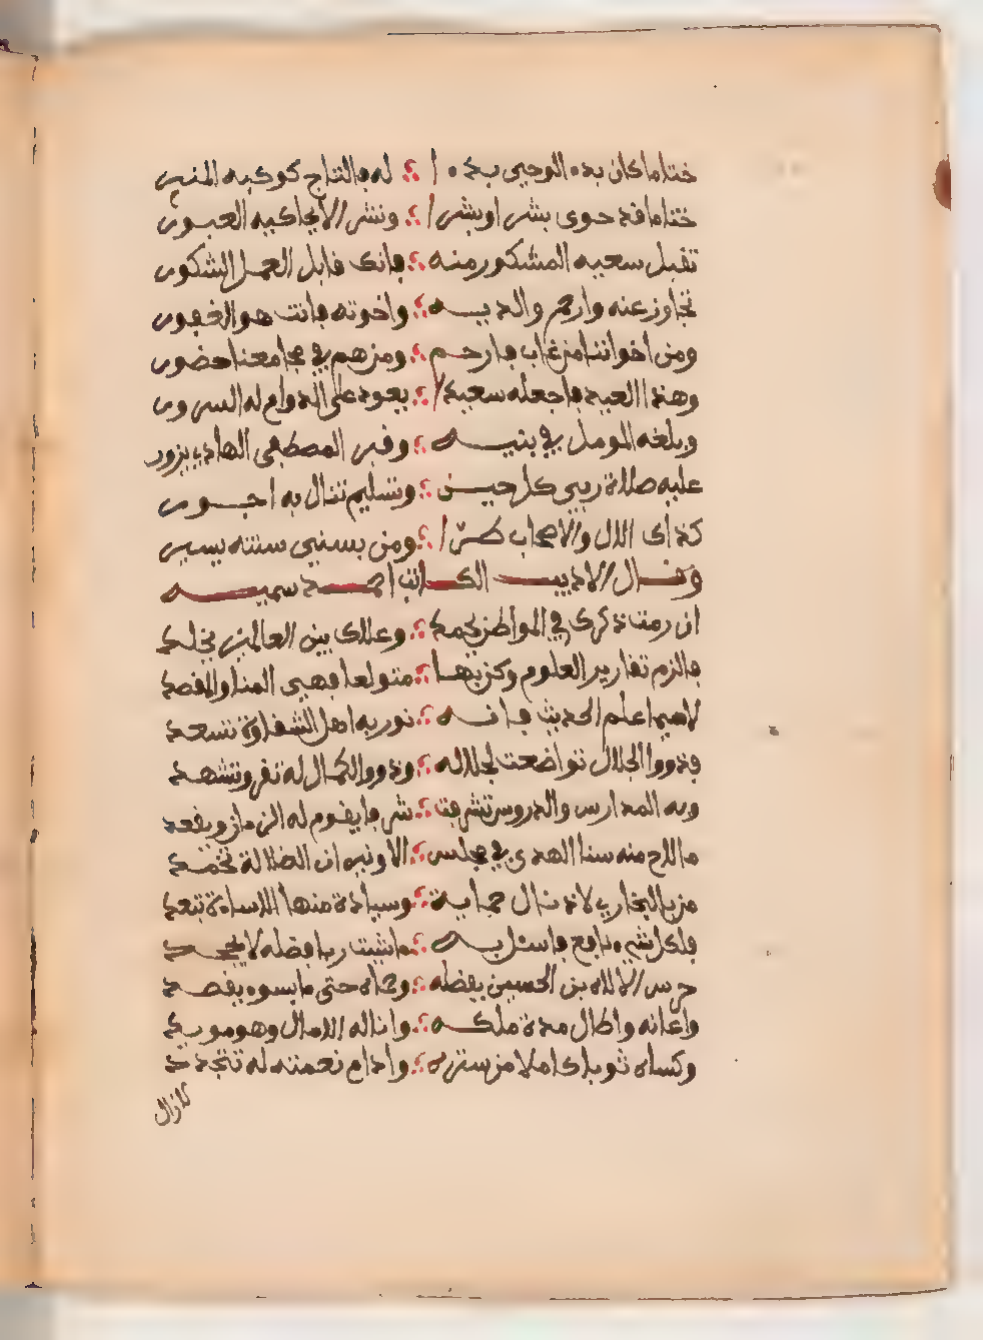 ختاما كان بدء الوحي بدءا ؛ له بالتاج كوكبه المنير
ختاما قد حوى بشرا وبشرا ؛ ونشر الا يحاكيه العبور
تقبل سعيه المشكور منه ؛ فانك قابل العمل الشكور
تجاوز عنه وارحم والديــه ؛ واخوته فانت هو الغفور
ومن اخواننا من غاب فارحم ؛ ومن هم في مجامعنا حضور
وهذا العيد فاجعله سعيدا ؛ يعود على الدوام له السرور
وبلغه المومل في بنيــه ؛ وقبر المصطفى الهادي يزور
عليه صلاة ربي كل حيــن ؛ وتسليم تنال به اجــور
كذاك الال والاصحاب طــرا ؛ ومن بسنى سنته يسير
وقــال الاديب الكــاتب احمــد سميــه
ان رمت ذكرك في المواطن يحمد ؛ وعلاك بين العالمين يخلد
فالزم تقارير العلوم وكن بهــا ؛ متولعا فهي المنا والمقصد
لاسيما علم الحديث فانــه ؛ نور به اهل الشقاوة تسعد
فذووا الجلال تواضعت لجلاله ؛ وذووا الكمال له تقر وتشهــد
وبه المدارس والدروس تشرفت ؛ شرفا يقوم له الزمان ويقعد
ما لاح منه سنا الهدى في مجلس ؛ الا ونيران الضلالة تخمــد
من بالبخاري لاذ نال حمايــة ؛ وسيادة منها الاساءة تبعد
فلكل شيء نافع فاسئل بــه ؛ ما شئت ربا فضله لا يجحــد
حرس الالاه بن الحسين بفضله ؛ وحماه حتى ما بسوء يقصــد
واعانه واطال مدة ملكــه ؛ واناله الامال وهو مويــد
وكساه ثوبا كاملا من ستره ؛ وادام نعمته له تتجدد
لازال